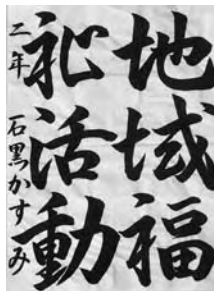 地域福
祉活動
二年 石黒かすみ